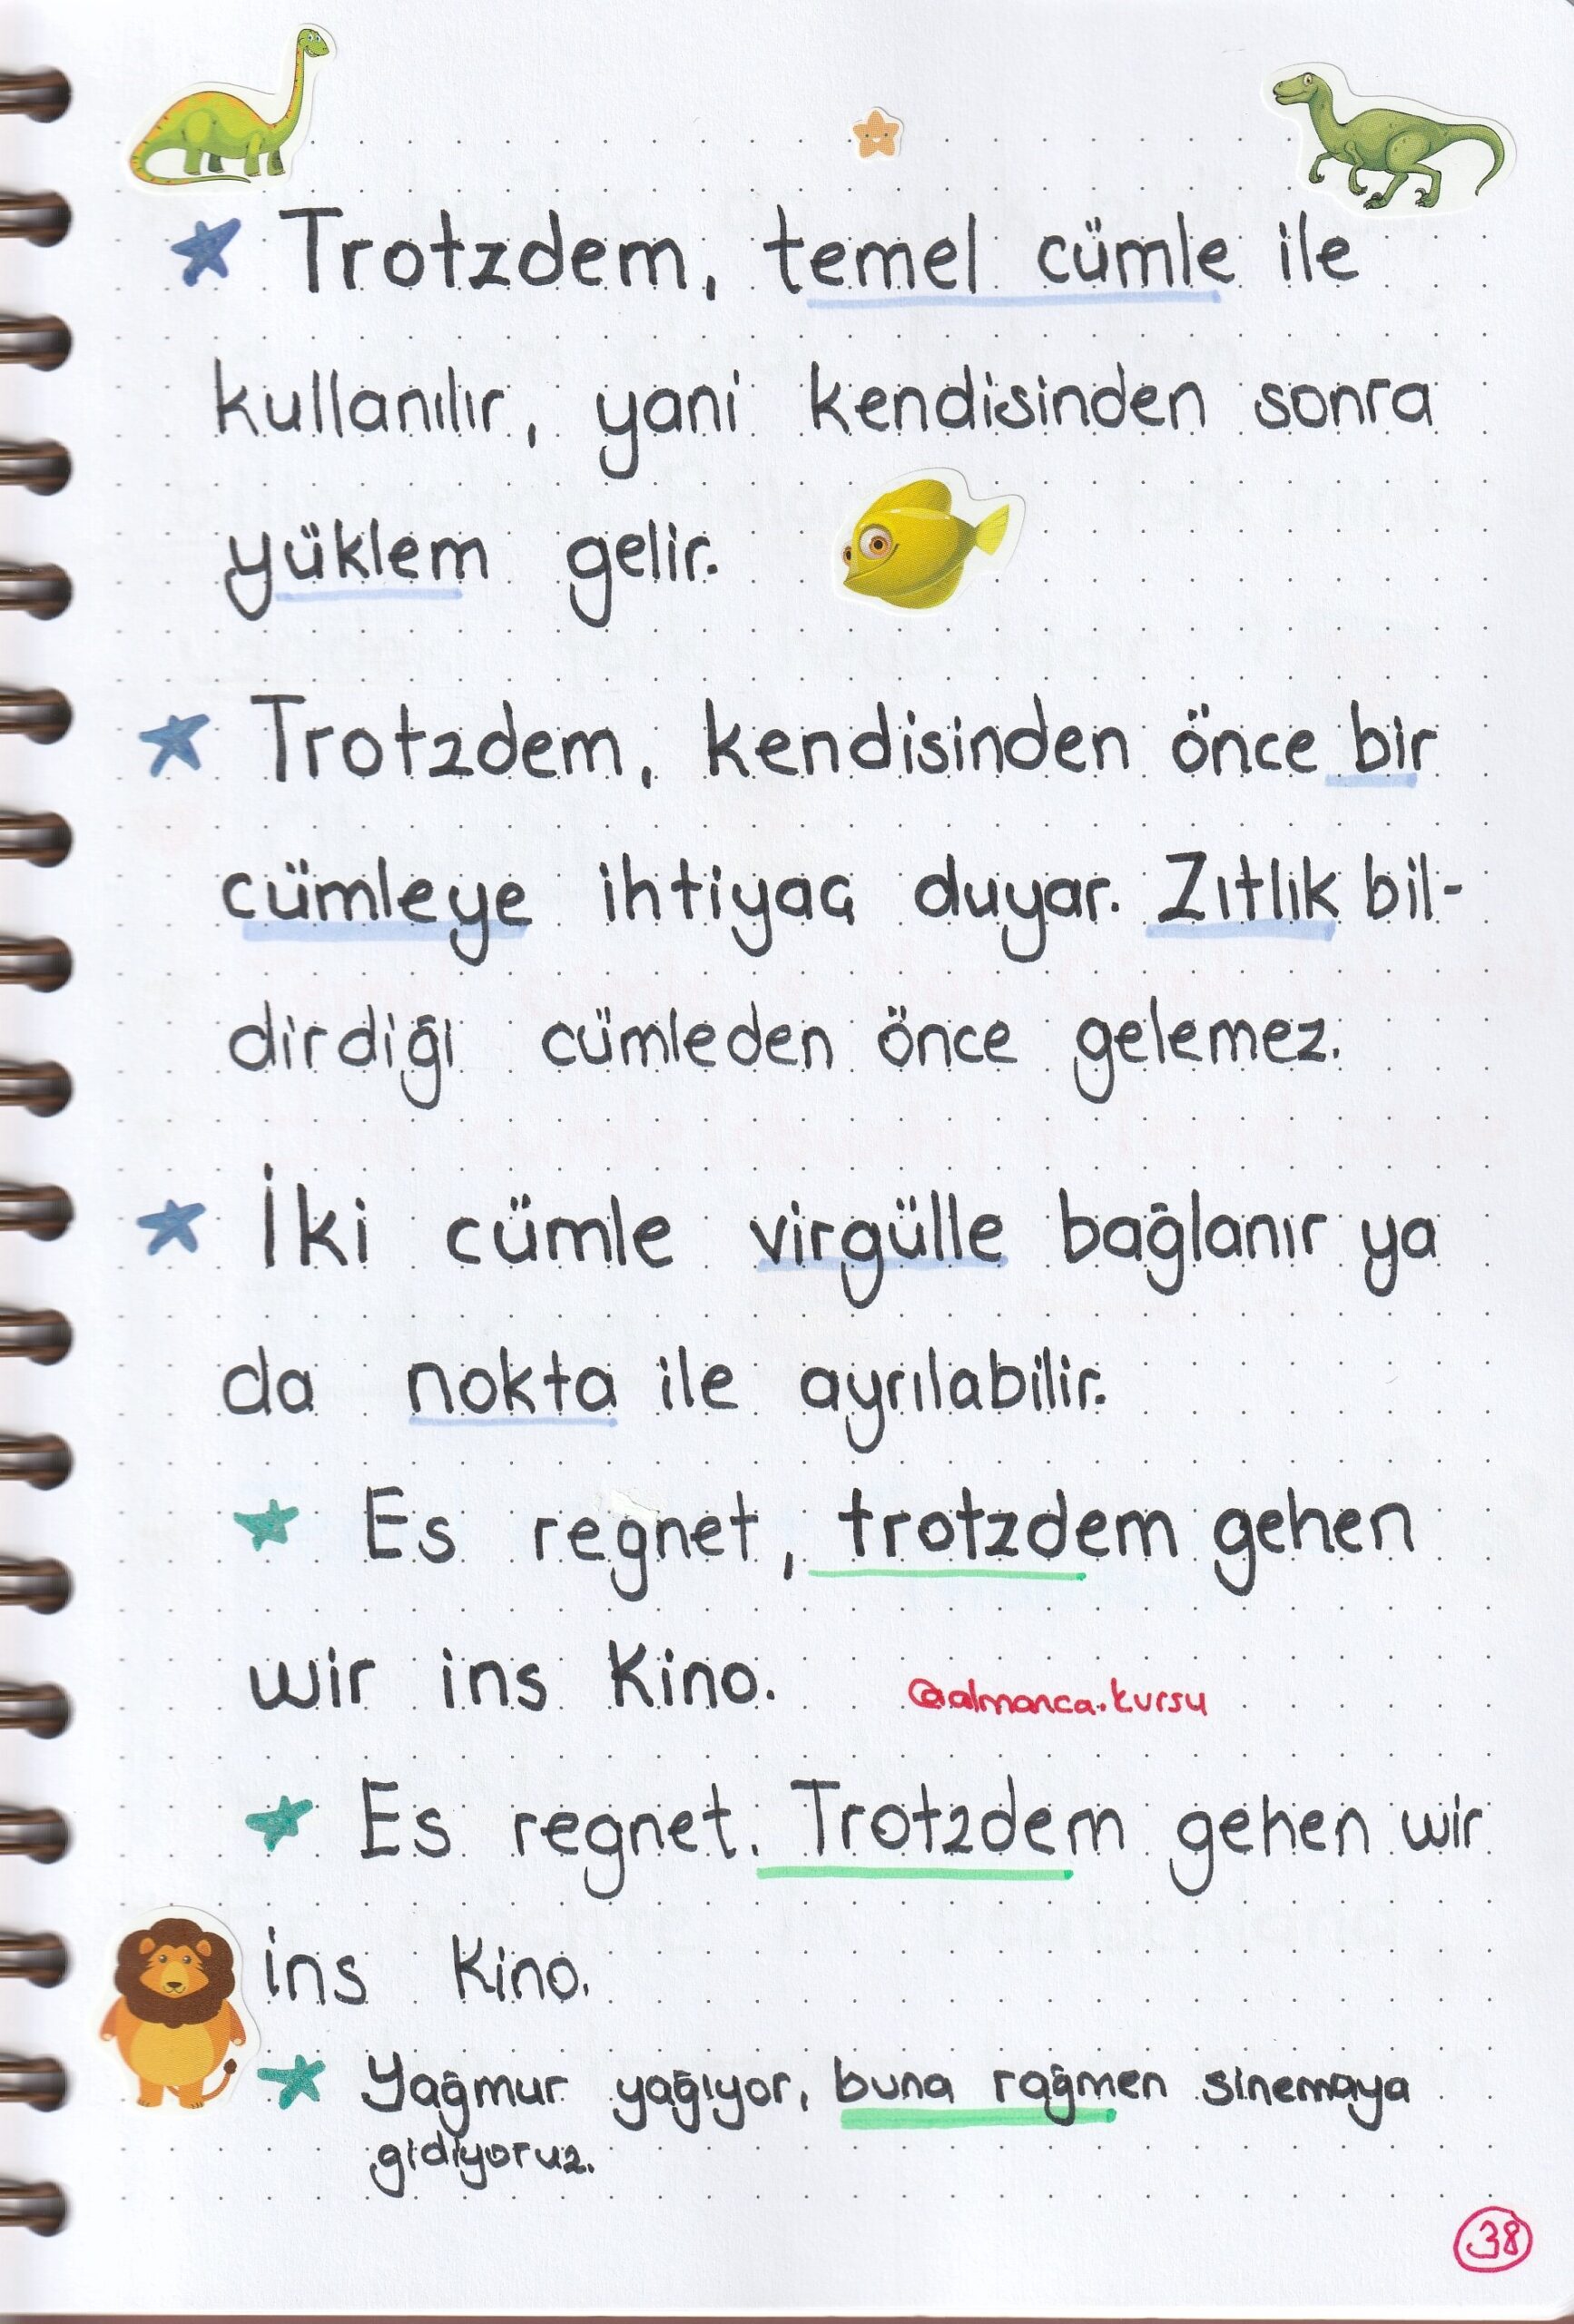 Trotzdem, temel cümle ile
kullanılır, yani kendisinden sonra
yüklem gelir.
Trotzdem, kendisinden önce bir
cümleye ihtiyaç duyar. Zıtlık bil-
dirdiği cümleden önce gelemez.
İki cümle virgülle bağlanır ya
da nokta ile ayrılabilir.
Es regnet, trotzdem gehen
wir ins Kino.
@almanca.kursu
Es regnet. Trotzdem gehen wir
ins Kino.
Yağmur yağıyor, buna rağmen sinemaya
gidiyoruz.
38